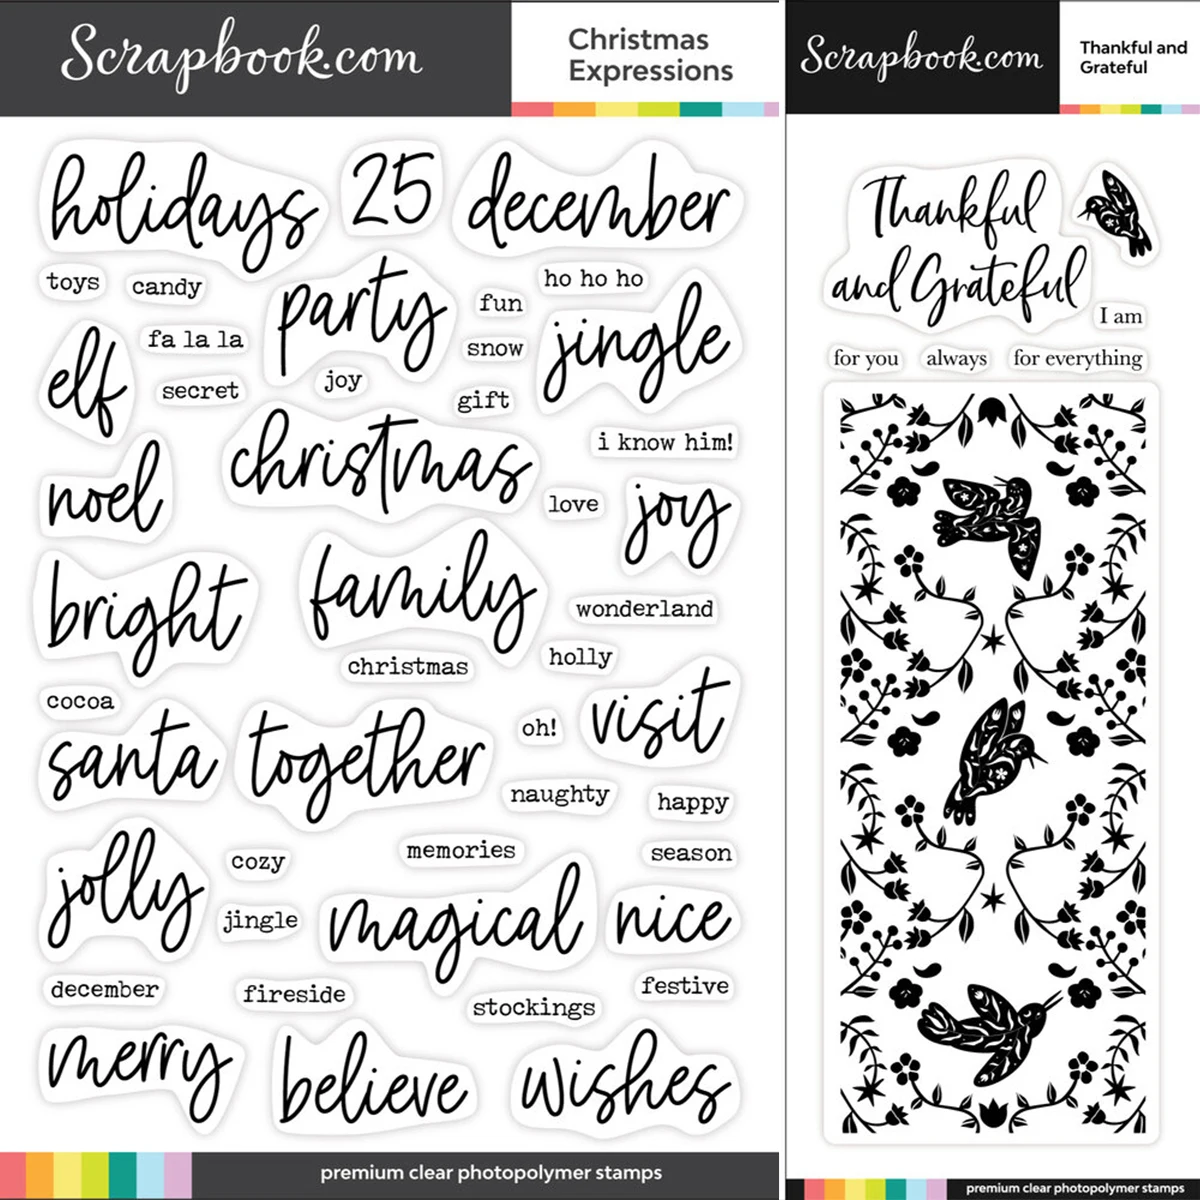 Scrapbook.com
Christmas
Expressions
holidays
25
december
toys
candy
party
fun
ho ho ho
elf
fa la la
secret
joy
snow
gift
jingle
christmas
i know him!
noel
love
joy
bright
family
wonderland
christmas
holly
cocoa
santa
together
oh!
visit
naughty
happy
jolly
cozy
memories
season
jingle
magical
nice
december
fireside
stockings
festive
merry
believe
wishes
premium clear photopolymer stamps
Scrapbook.com
Thankful and
Grateful
Thankful
and Grateful
I am
for you
always
for everything
premium clear photopolymer stamps